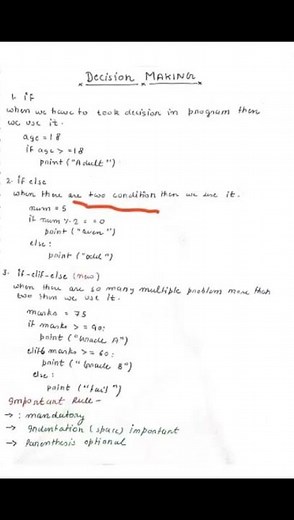 Decision MAKING
1. if
when we have to took decision in program then
we use it.
age = 18
if age >= 18
print ("Adult")
2. if else
when there are two condition then we use it.
num = 5
if num % 2 = = 0
print ("even")
else:
print ("odd")
3. if-elif-else (new)
when there are so many multiple problem more than
two then we use it.
marks = 75
if marks >= 90:
print ("Grade A")
elif marks >= 60:
print ("Grade B")
else:
print ("fail")
Important Rule -
→ : mandatory
→ Indentation (space) important
→ Parenthesis optional